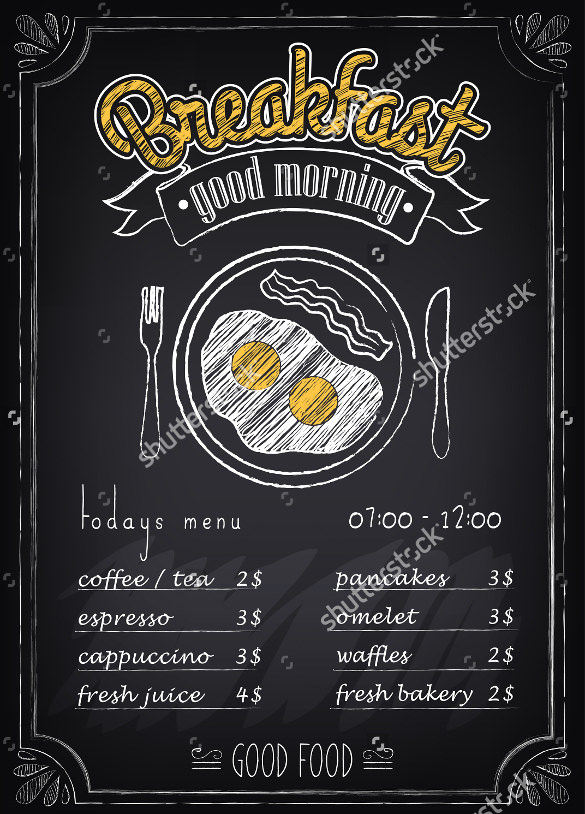 Breakfast
good morning
todays menu
07:00 - 12:00
coffee / tea 2$
espresso 3$
cappuccino 3$
fresh juice 4$
pancakes 3$
omelet 3$
waffles 2$
fresh bakery 2$
GOOD FOOD
shutterstock
shutterstock
shutterstock
shutterstock
shutterstock